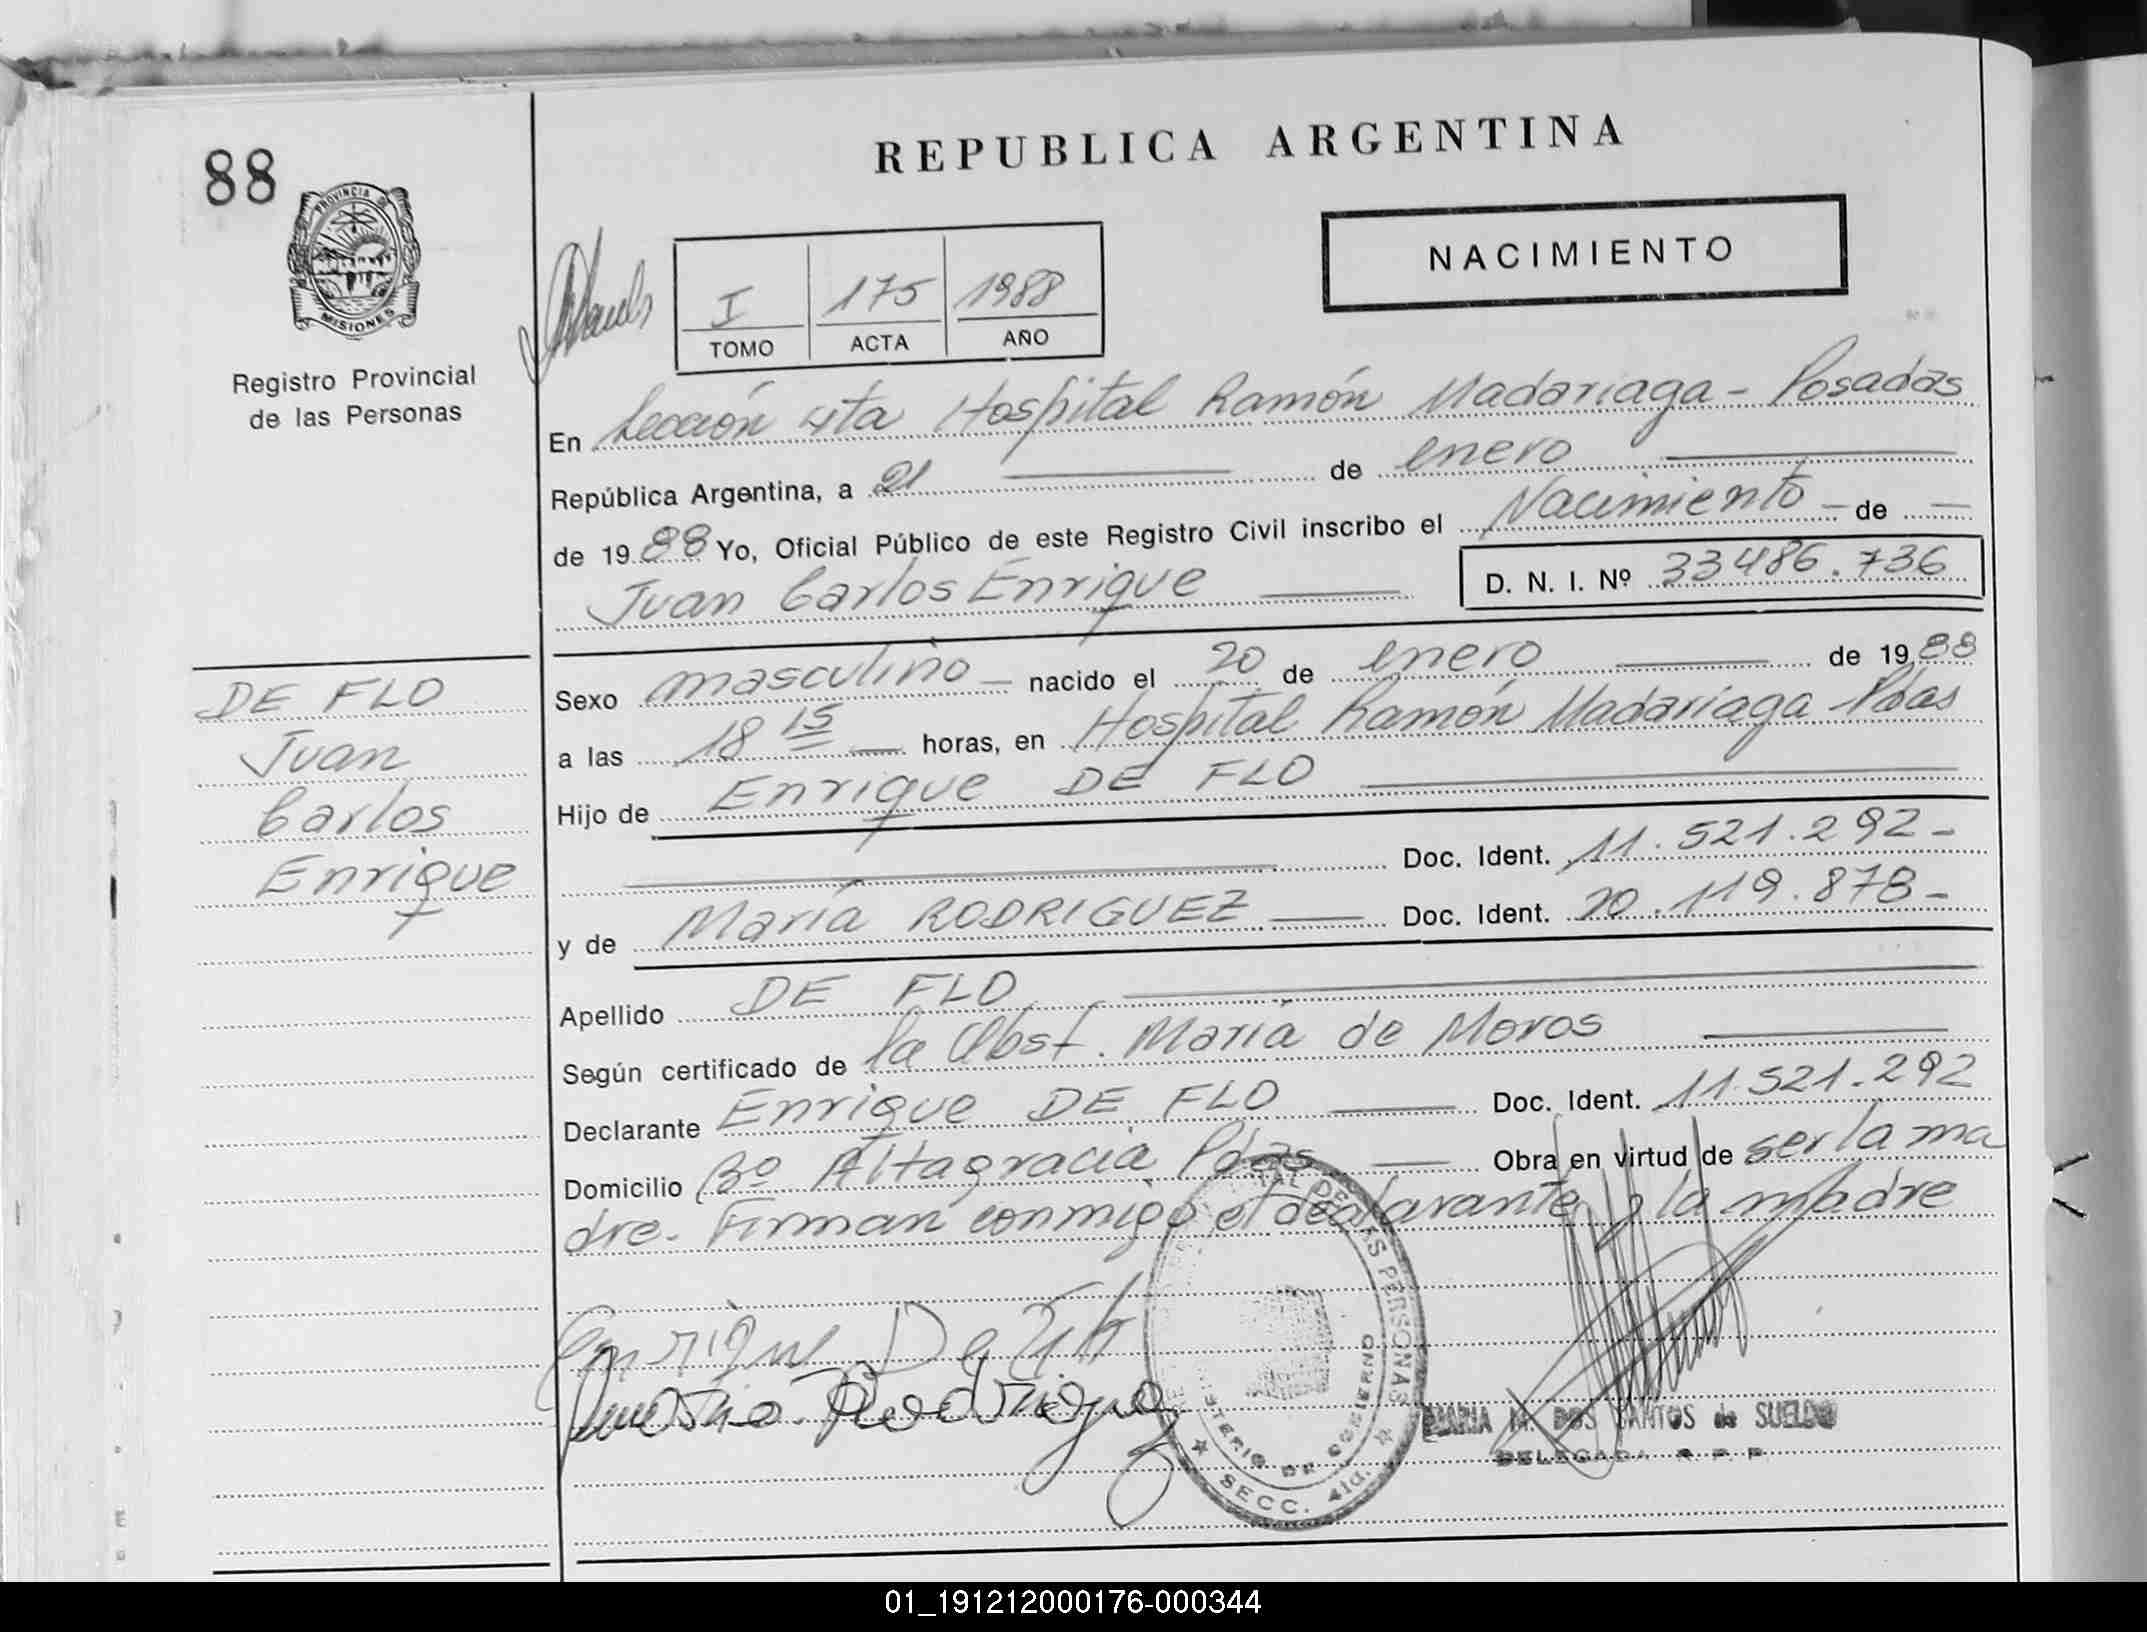 88
REPUBLICA ARGENTINA
PROVINCIA DE
MISIONES
Registro Provincial
de las Personas
I 175 1988
TOMO ACTA AÑO
NACIMIENTO
En Sección 4ta Hospital Ramón Madariaga - Posadas
República Argentina, a 21 de enero
de 1988 Yo, Oficial Público de este Registro Civil inscribo el Nacimiento - de -
Juan Carlos Enrique
D. N. I. Nº 33486.736
DE FLO
Juan
Carlos
Enrique
Sexo masculino - nacido el 20 de enero de 1988
a las 18 15 horas, en Hospital Ramón Madariaga - Pdas
Hijo de Enrique DE FLO
Doc. Ident. 11.521.292-
y de María RODRIGUEZ Doc. Ident. 20.119.878-
Apellido DE FLO
Según certificado de la Obst. María de Moros
Declarante Enrique DE FLO Doc. Ident. 11.521.292
Domicilio Bº Altagracia Pdas Obra en virtud de ser la ma
dre. Firman conmigo el declarante y la madre
Enrique De Flo
Maria Rodriguez
DE LAS PERSONAS
MINISTERIO DE GOBIERNO
SECC. 4ta.
MARIA M. DOS SANTOS de SUELDO
DELEGADA R. P. P.
01_191212000176-000344